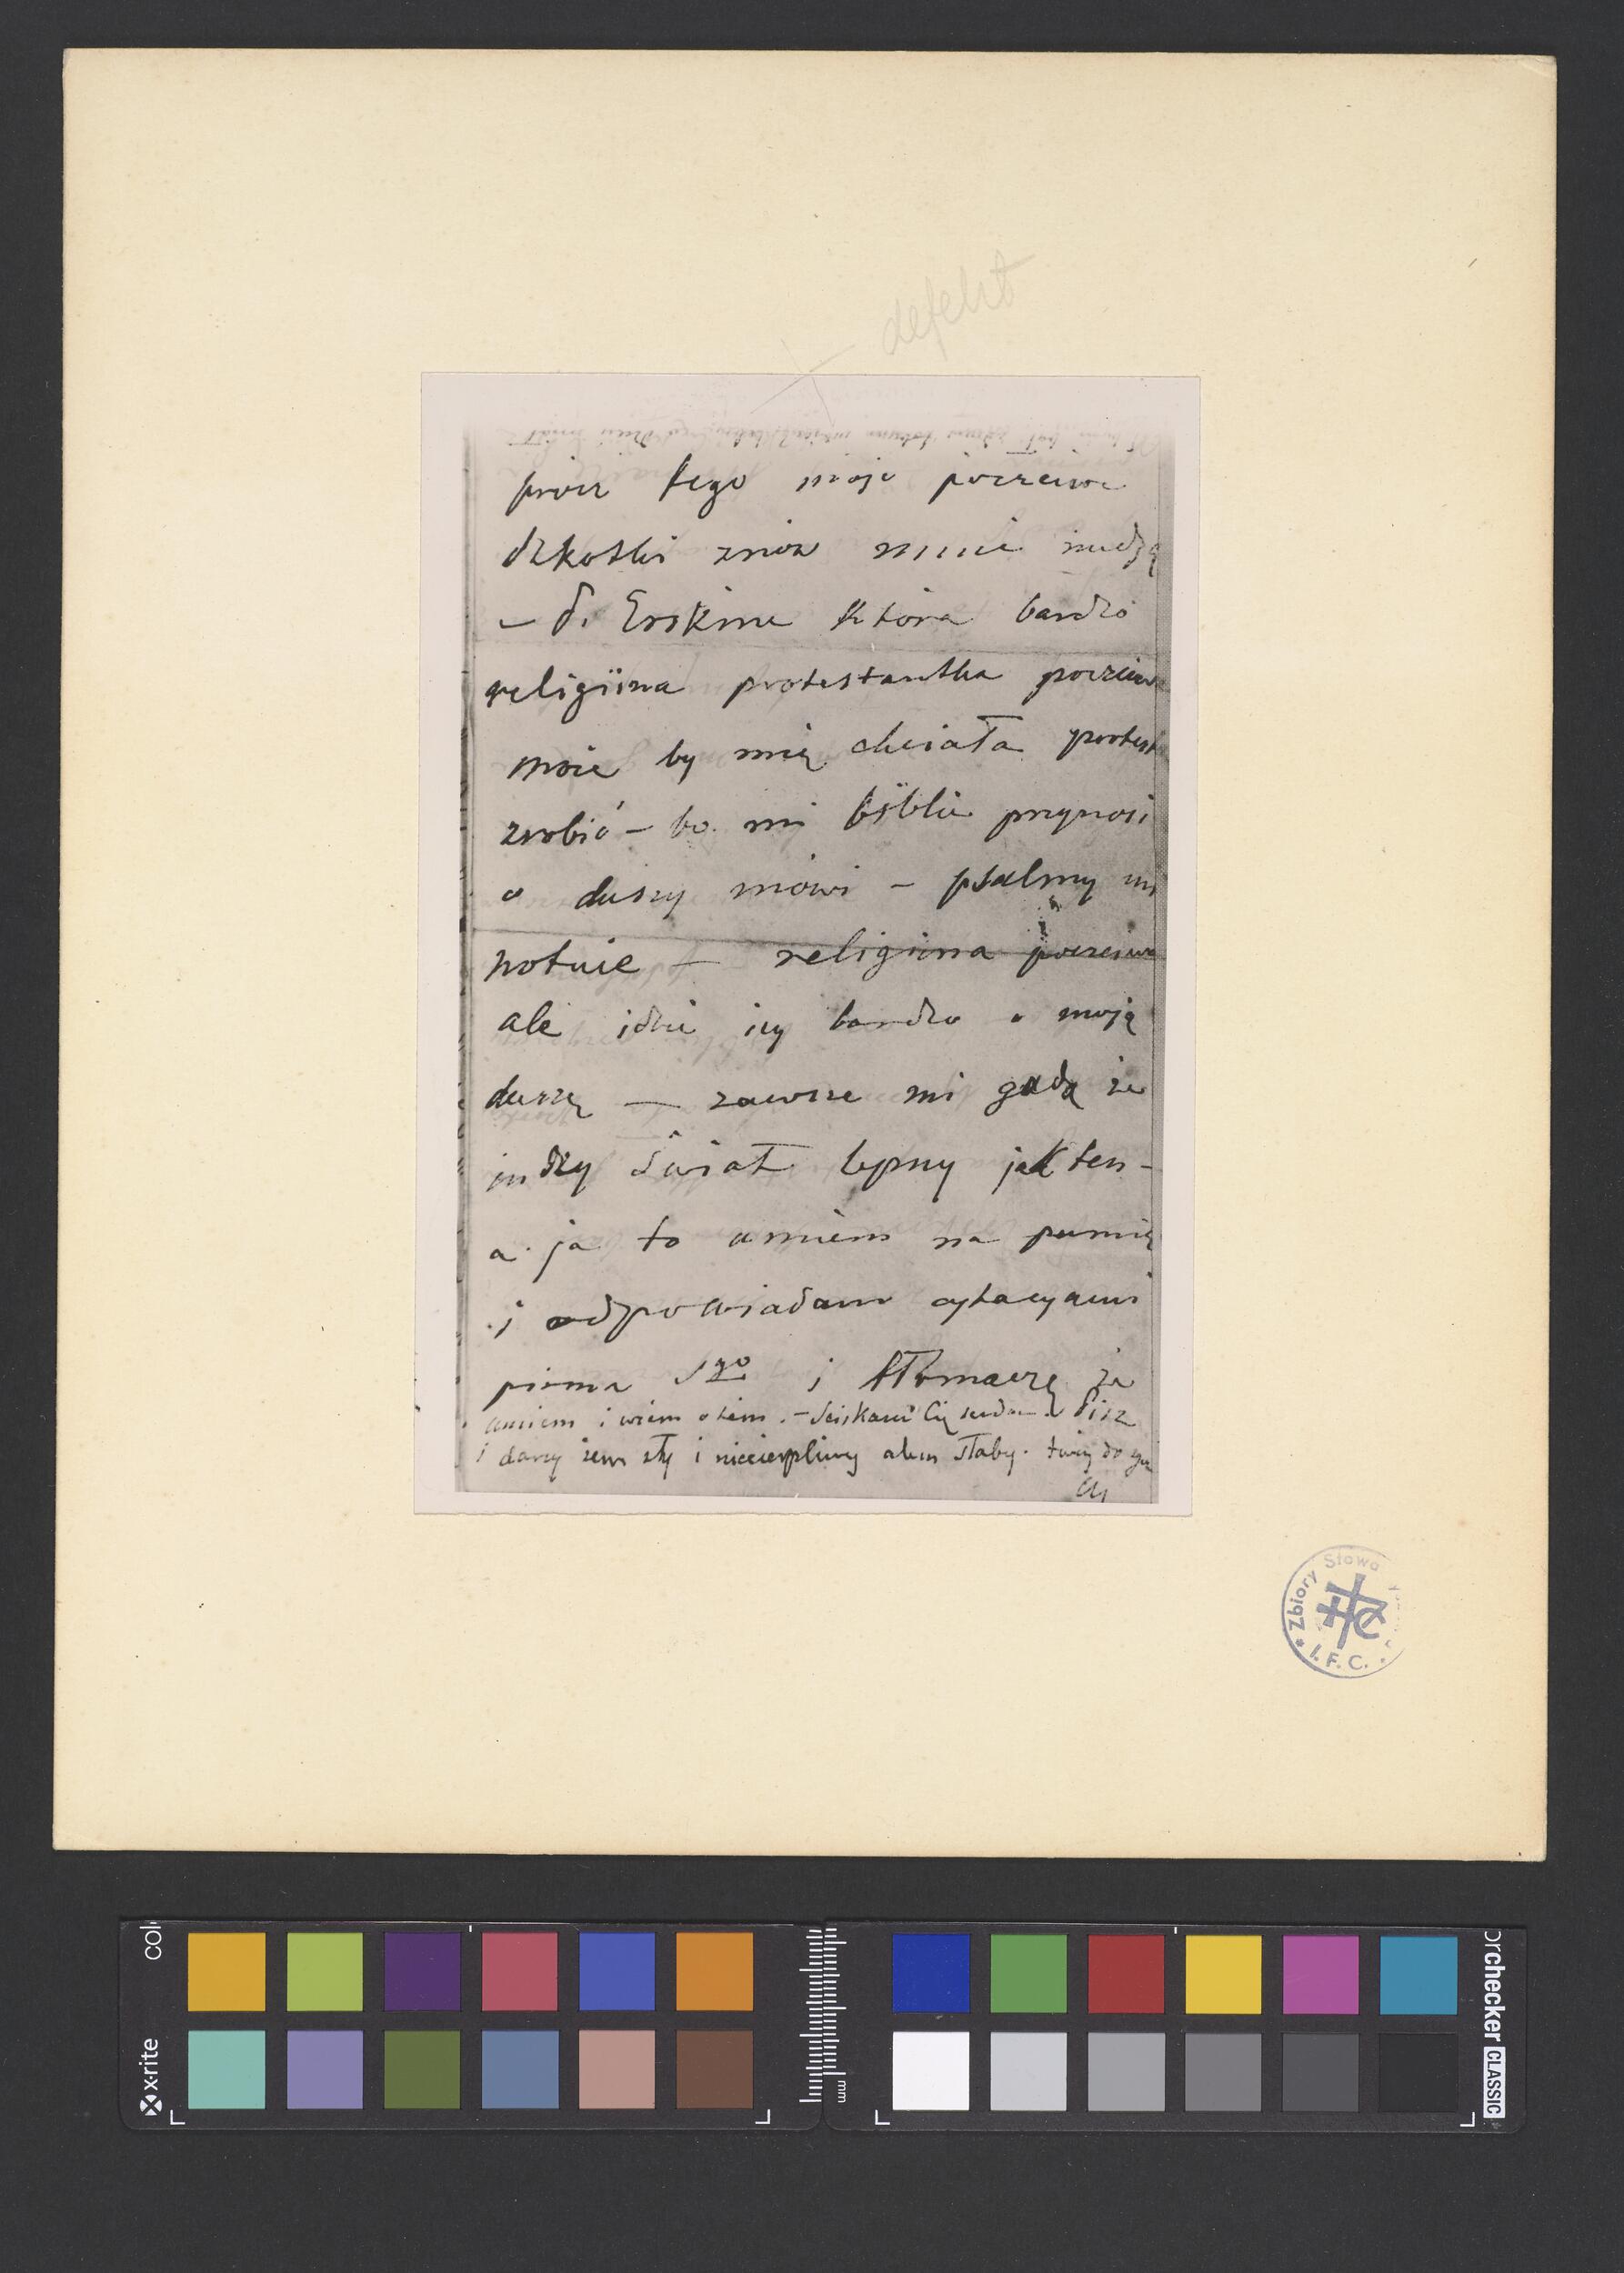 defekt
prócz tego moje poczciwe
Szkotki znów mnie nudzą
– P. Erskine która bardzo
religiina protestantka poczciwa
może by mię chciała protest
zrobić – bo mi biblie przynosi
o duszy mówi – psalmy mi
notuie – religiina poczciwa
ale idzie iey bardzo o moją
duszę — zawsze mi gada że
indzy świat lepszy jak ten –
a ja to umiem na pamię
i odpowiadam cytacyami
pisma Sgo i tłomaczę że
umiem i wiem o tem. – Sciskam Cię serdecz. Pisz
i daruy żem zły i niecierpliwy alem słaby. twóy do zgo
Zbiory Słowa
I. F. C.
x-rite
mm
checker CLASSIC